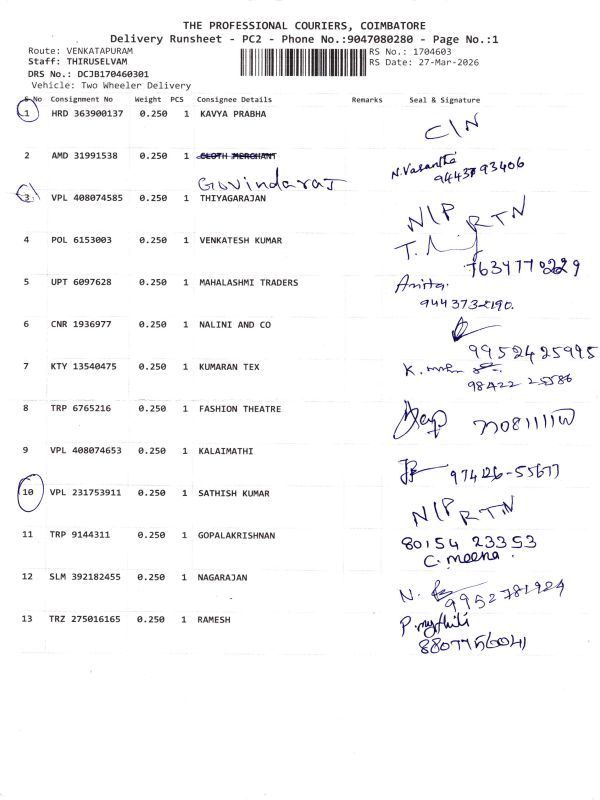 THE PROFESSIONAL COURIERS, COIMBATORE
Delivery Runsheet - PC2 - Phone No.:9047080280 - Page No.:1
Route: VENKATAPURAM RS No.: 1704603
Staff: THIRUSELVAM RS Date: 27-Mar-2026
DRS No.: DCJB170460301
Vehicle: Two Wheeler Delivery
S No Consignment No Weight PCS Consignee Details Remarks Seal & Signature
1 HRD 363900137 0.250 1 KAVYA PRABHA C/N
2 AMD 31991538 0.250 1 CLOTH MERCHANT N.Vasantha
9443793406
Govindaraj
3 VPL 408074585 0.250 1 THIYAGARAJAN N/P RTN
4 POL 6153003 0.250 1 VENKATESH KUMAR
5 UPT 6097628 0.250 1 MAHALASHMI TRADERS Anitha
6 CNR 1936977 0.250 1 NALINI AND CO
9952425995
7 KTY 13540475 0.250 1 KUMARAN TEX K.
98422 25586
8 TRP 6765216 0.250 1 FASHION THEATRE
9 VPL 408074653 0.250 1 KALAIMATHI 97426-55677
10 VPL 231753911 0.250 1 SATHISH KUMAR N/P RTN
11 TRP 9144311 0.250 1 GOPALAKRISHNAN 80154 23353
C. meena.
12 SLM 392182455 0.250 1 NAGARAJAN N.
9952781924
13 TRZ 275016165 0.250 1 RAMESH P. mythili